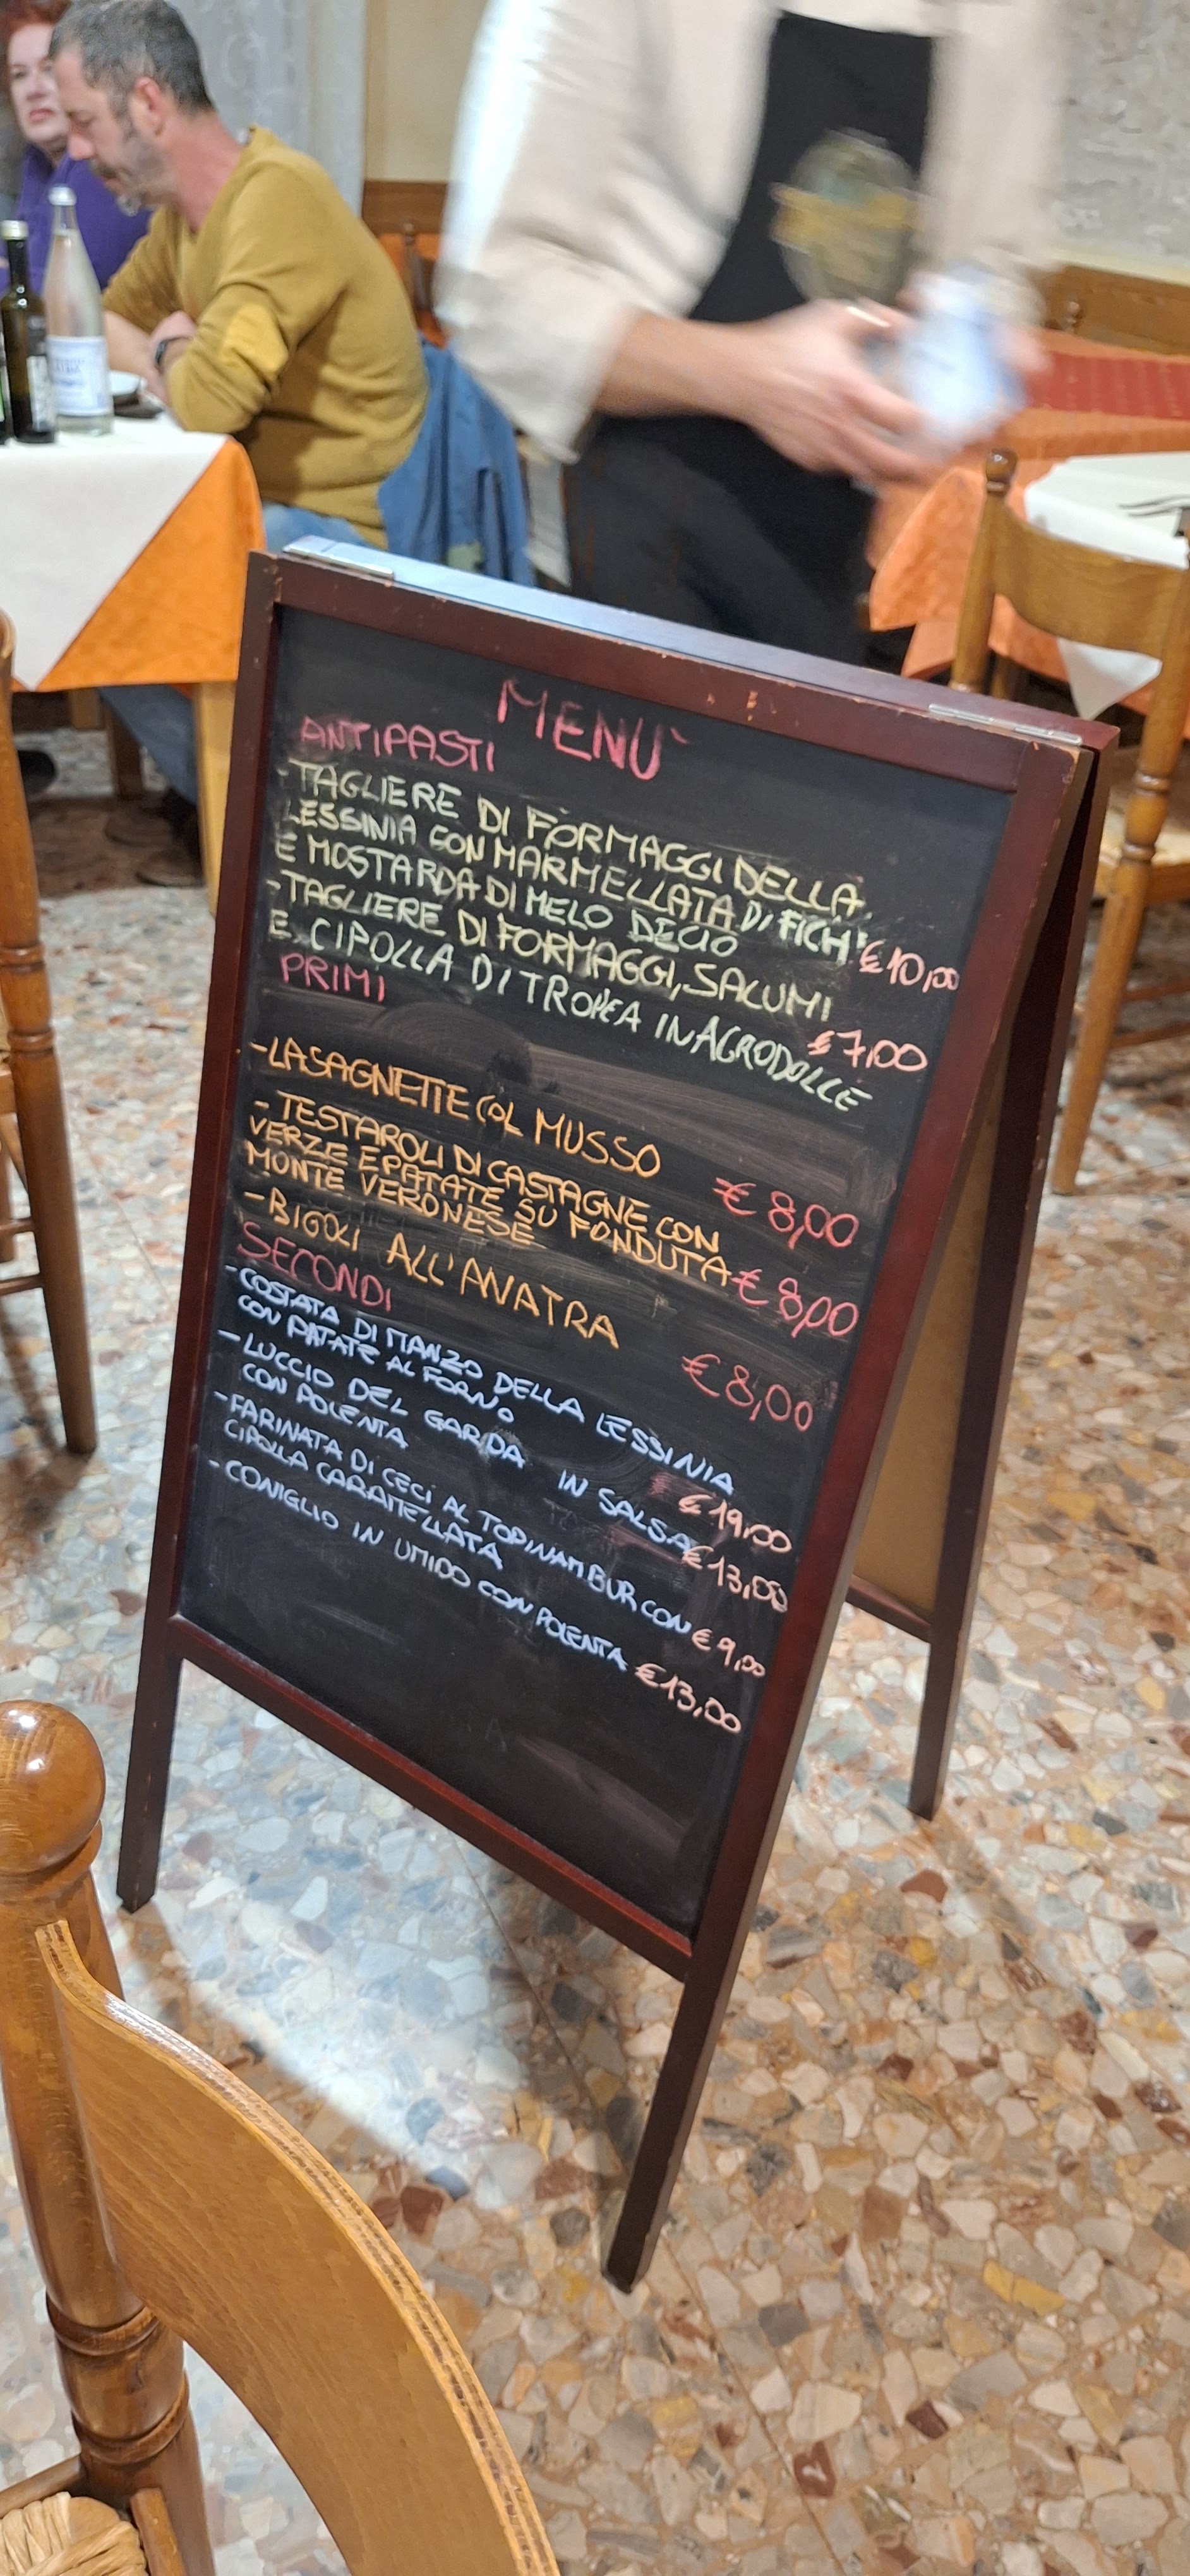 MENU`
ANTIPASTI
-TAGLIERE DI FORMAGGI DELLA
LESSINIA CON MARMELLATA DI FICHI
E MOSTARDA DI MELO DECIO €10,00
-TAGLIERE DI FORMAGGI, SALUMI
E CIPOLLA DI TROPEA IN AGRODOLCE €7,00
PRIMI
-LASAGNETTE COL MUSSO €8,00
-TESTAROLI DI CASTAGNE CON
VERZE E PATATE SU FONDUTA
MONTE VERONESE €8,00
-BIGOLI ALL'ANATRA €8,00
SECONDI
-COSTATA DI MANZO DELLA LESSINIA
CON PATATE AL FORNO €19,00
-LUCCIO DEL GARDA IN SALSA
CON POLENTA €13,00
-FARINATA DI CECI AL TOPINAMBUR CON
CIPOLLA CARAMELLATA €9,00
-CONIGLIO IN UMIDO CON POLENTA €13,00